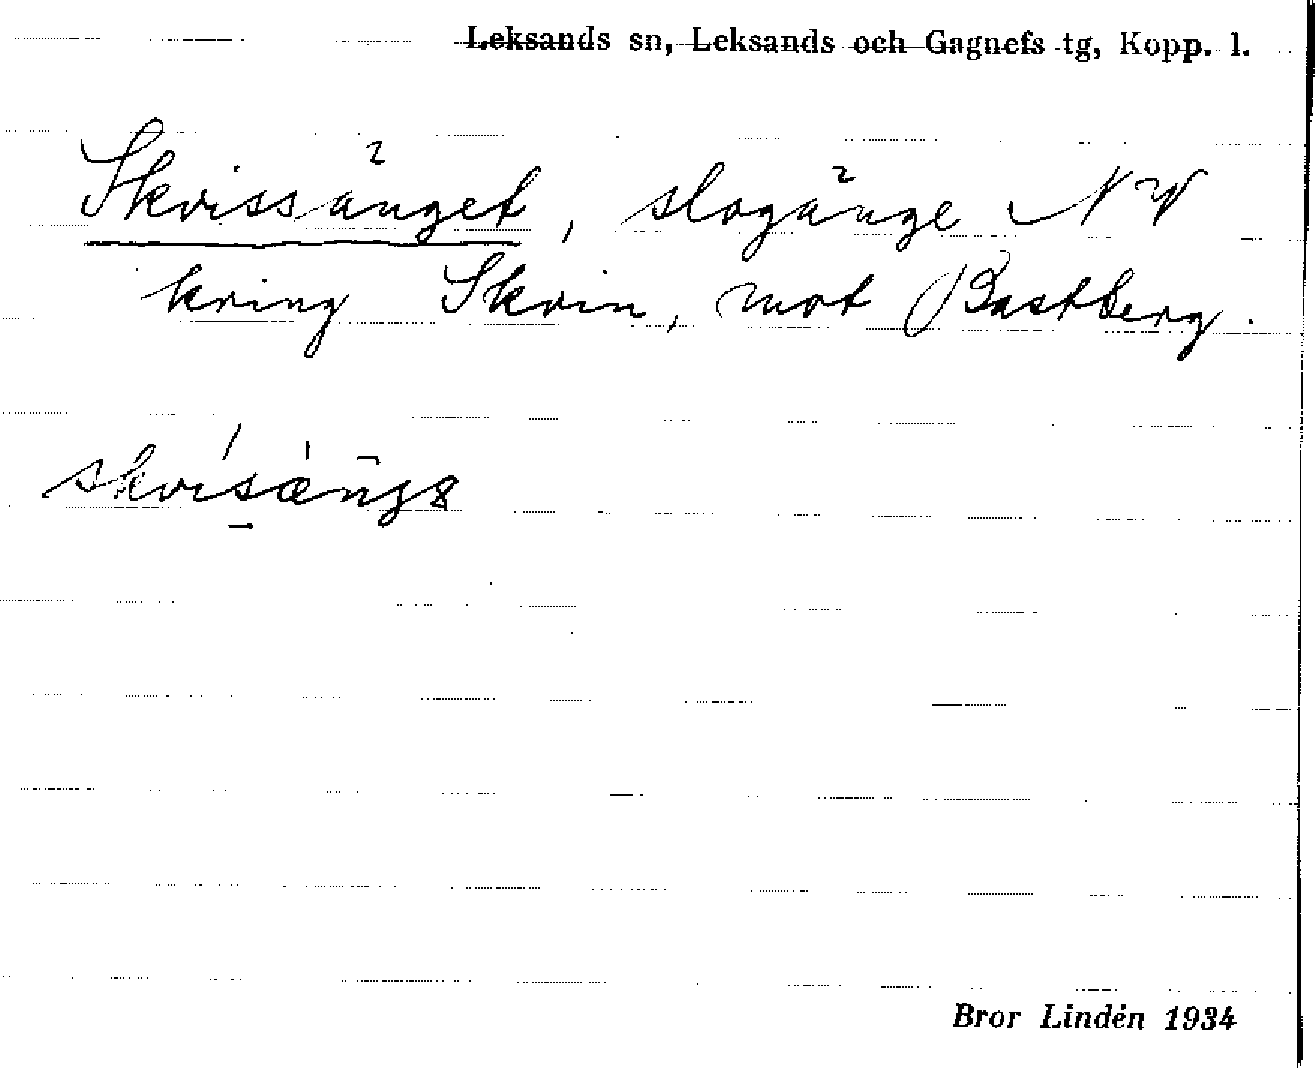 Leksands sn, Leksands och Gagnefs tg, Kopp. l.
Skvissänget, slogänge NW
kring Skvin, mot Bastberg.
skvisäŋgə
Bror Lindén 1934